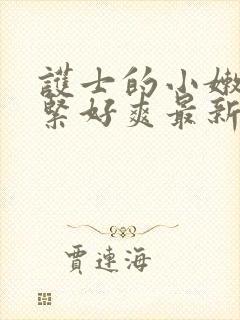 護士的小嫩
緊好爽最新
賈連海